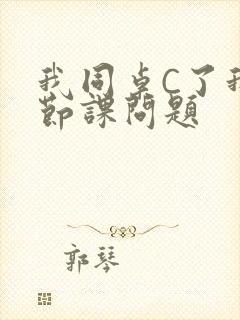 我同卓C了我
節課問題
郭琴